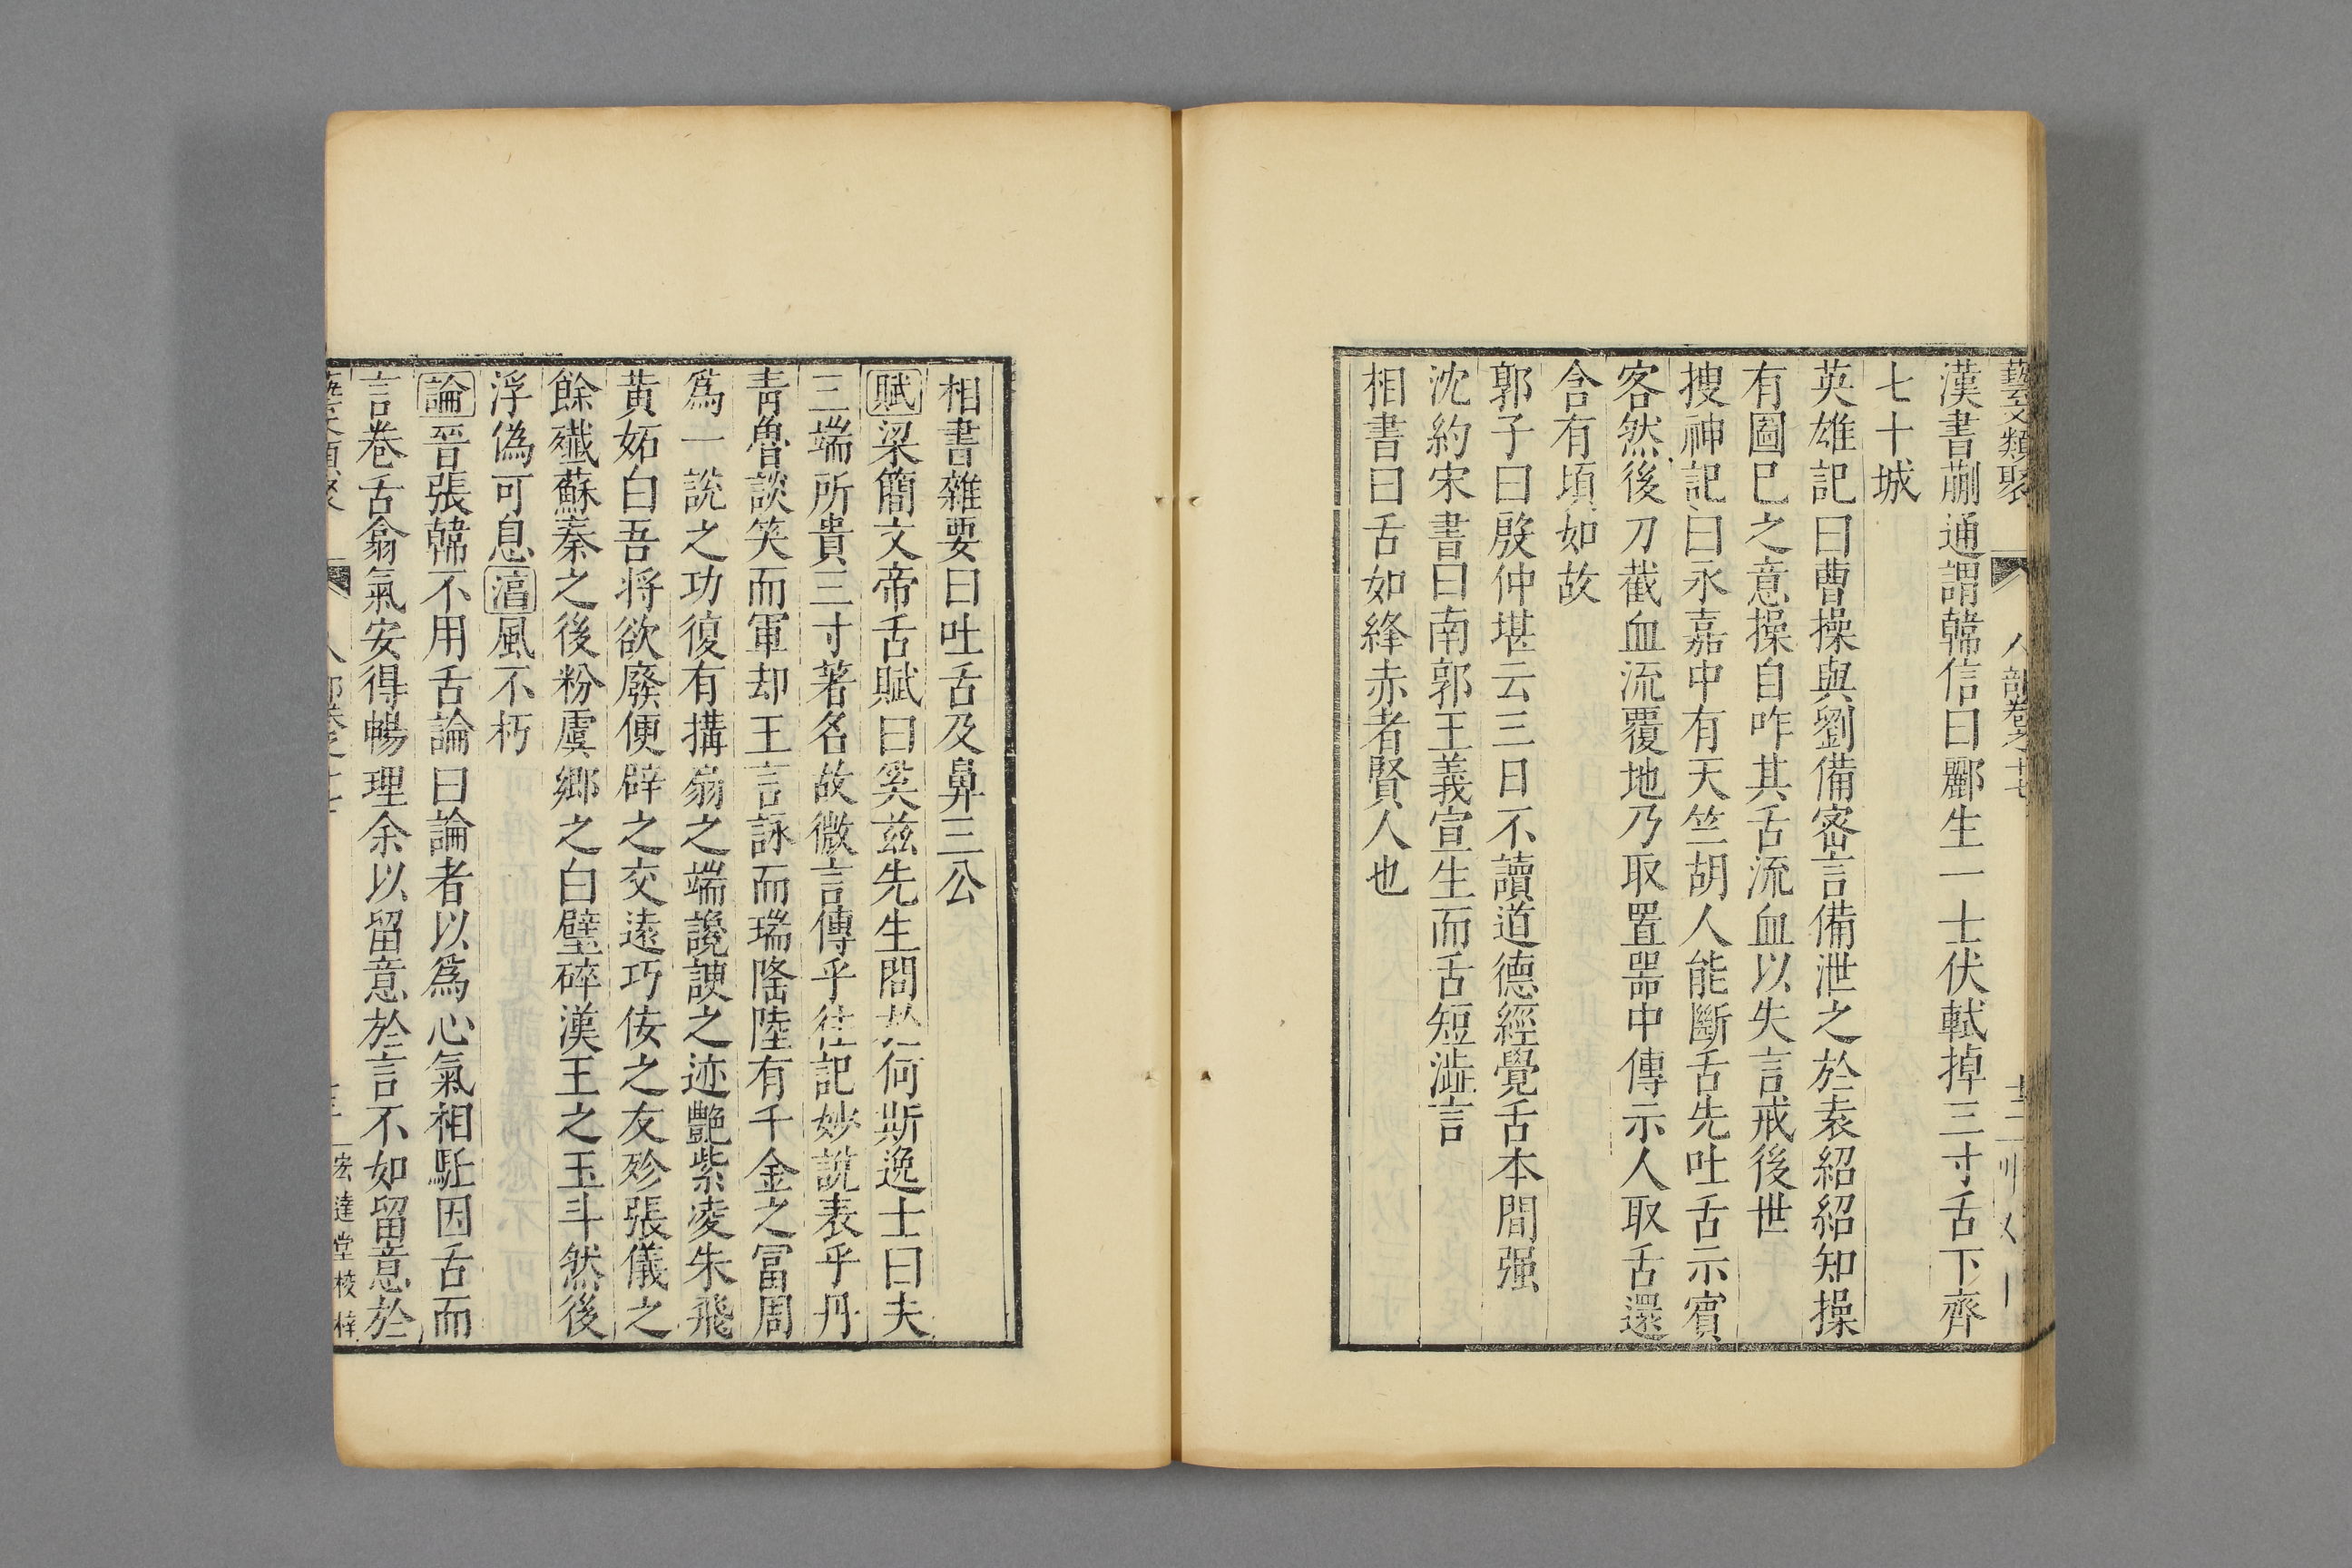 藝文類聚 人部卷之十七 十二
漢書蒯通謂韓信曰酈生一士伏軾掉三寸舌下齊
七十城
英雄記曰曹操與劉備密言備泄之於袁紹紹知操
有圖巳之意操自咋其舌流血以失言戒後世
搜神記曰永嘉中有天竺胡人能斷舌先吐舌示賓
客然後刀截血流覆地乃取置噐中傳示人取舌還
含有頃如故
郭子曰殷仲堪云三日不讀道德經覺舌本間强
沈約宋書曰南郭王義宣生而舌短澁言
相書曰舌如絳赤者賢人也
相書雜要曰吐舌及鼻三公
賦梁簡文帝舌賦曰奚兹先生問於何斯逸士曰夫
三端所貴三寸著名故微言傳乎徃記妙說表乎丹
青魯談笑而軍却王言詠而瑞隆陸有千金之冨周
爲一說之功復有搆扇之端讒諛之迹艷紫凌朱飛
黃妬白吾将欲廢便辟之交遠巧佞之友殄張儀之
餘殱蘇秦之後粉虞郷之白璧碎漢王之玉斗然後
浮偽可息淳風不朽
論晉張韓不用舌論曰論者以爲心氣相駈因舌而
言卷舌翕氣安得暢理余以留意於言不如留意於
人部卷之十七 宏達堂校梓